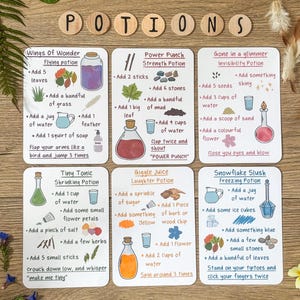 POTIONS
Wings Of Wonder
Flying potion
• Add 5 leaves
• Add a handful of grass
• Add a jug of water
• Add 1 feather
• Add 1 squirt of soap
Flap your arms like a
bird and jump 3 times
Power Punch
Strength Potion
• Add 2 sticks
• Add 6 stones
• Add 1 big leaf
• Add a handful of mud
• Add 2 cups of water
Clap twice and
shout
"POWER PUNCH"
Gone in a glimmer
Invisibility Potion
• Add something shiny
• Add 5 seeds
• Add 3 cups of water
• Add a scoop of sand
• Add a colourful flower
Close you eyes and blow
Tiny Tonic
Shrinking Potion
• Add 1 cup of water
• Add some small flower petals
• Add a pinch of salt
• Add a few herbs
• Add 5 small sticks
Crouch down low, and whisper
"make me tiny"
Giggle Juice
Laughter Potion
• Add a sprinkle of sugar
• Add something Yellow
• Add 1 Piece of bark or wood chip
• Add 1 flower
• Add 2 cups of water
Spin around 3 times
Snowflake Slush
Freezing Potion
• Add a jug of water
• Add some ice cubes
• Add something blue
• Add a few small stones
• Add a handful of leaves
Stand on your tiptoes and
click your fingers twice